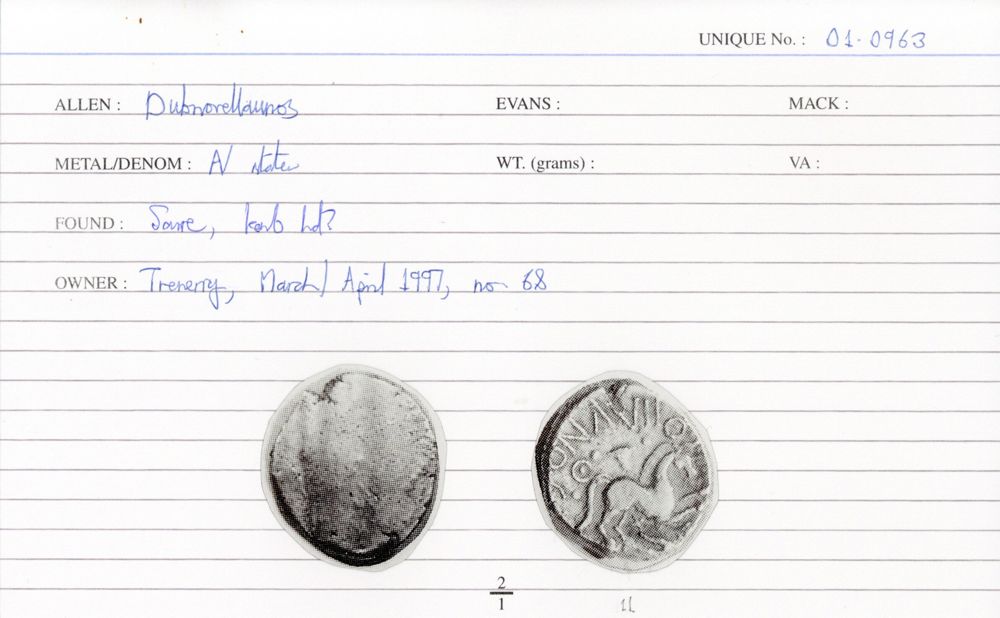 UNIQUE No. : 01-0963
ALLEN : Dubnovellaunos EVANS : MACK :
METAL/DENOM : AV stater WT. (grams) : VA :
FOUND : Sarre,
OWNER : Trenerry, March/April 1997, no 68
2
1